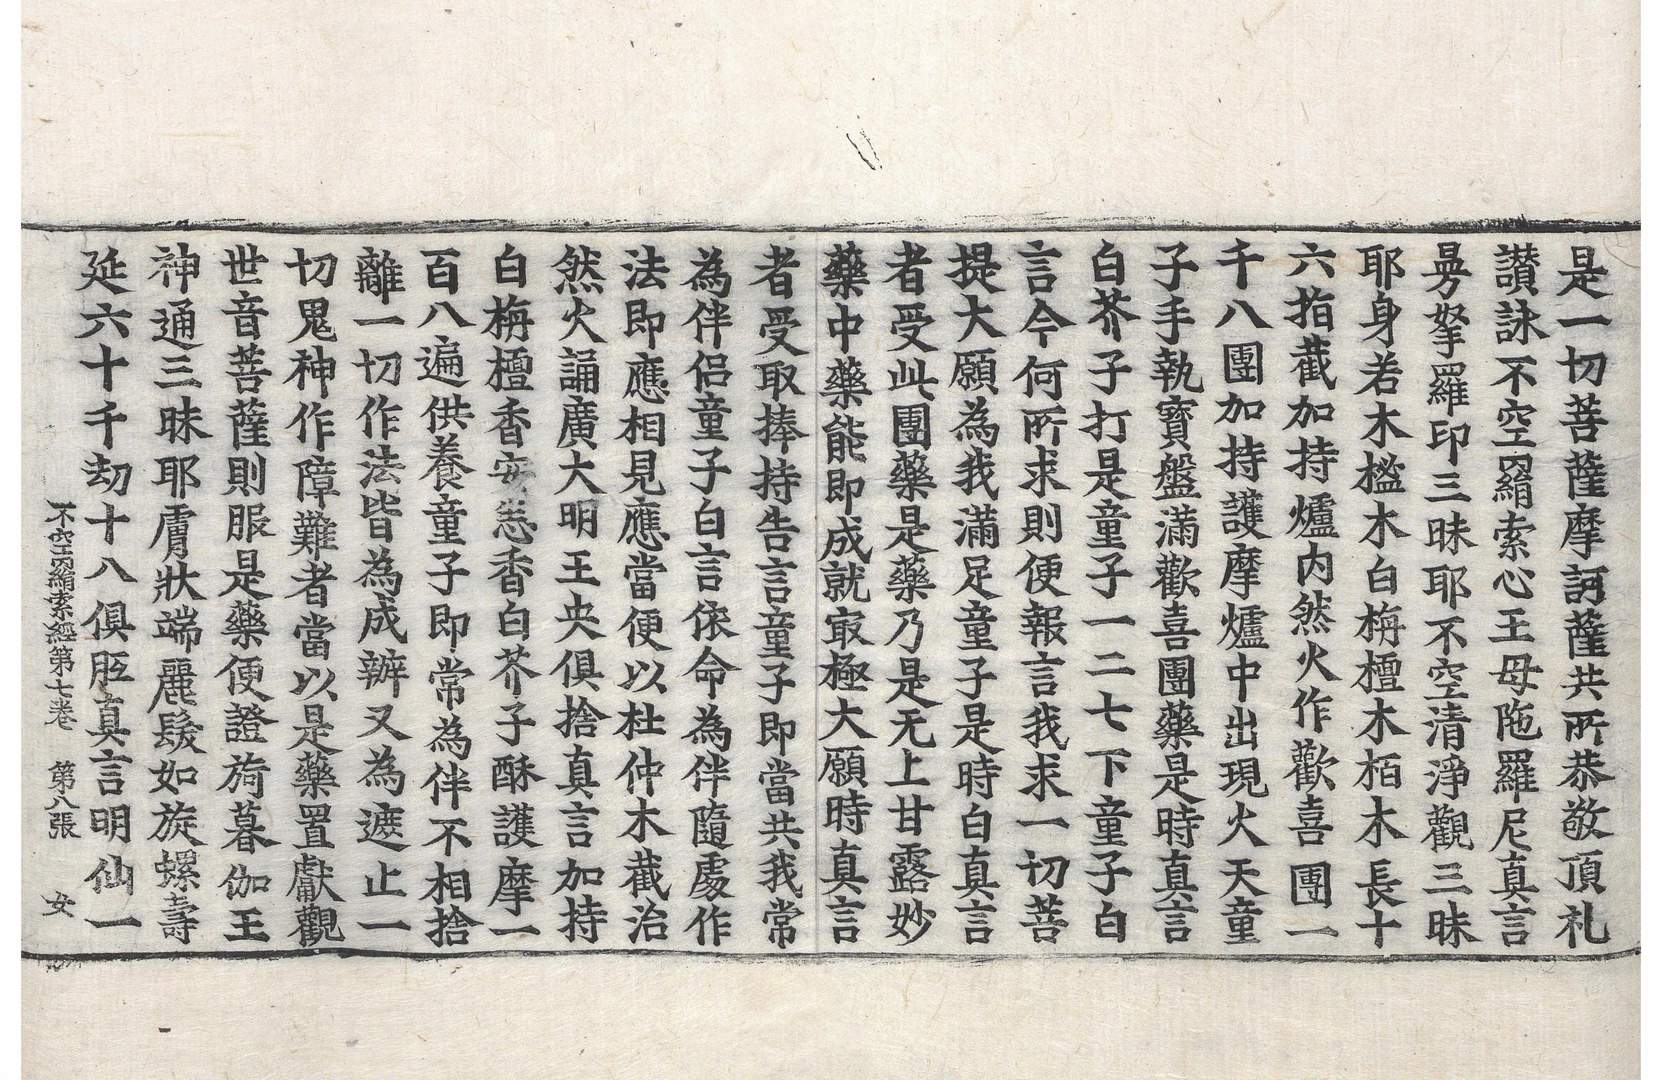 是一切菩薩摩訶薩共所恭敬頂礼
讃詠不空羂索心王母陁羅尼真言
曼拏羅印三昧耶不空清淨觀三昧
耶身若木檻木白栴檀木栢木長十
六指截加持爐内然火作歡喜團一
千八團加持護摩爐中出現火天童
子手執寶盤滿歡喜團藥是時真言
白芥子打是童子一二七下童子白
言今何所求則便報言我求一切菩
提大願為我滿足童子是時白真言
者受此團藥是藥乃是无上甘露妙
藥中藥能即成就㝡極大願時真言
者受取捧持告言童子即當共我常
為伴侶童子白言依命為伴隨處作
法即應相見應當便以杜仲木截治
然火誦廣大明王央俱捨真言加持
白栴檀香安悉香白芥子酥護摩一
百八遍供養童子即常為伴不相捨
離一切作法皆為成辦又為遮止一
切鬼神作障難者當以是藥置獻觀
世音菩薩則服是藥便證旖暮伽王
神通三昧耶膚狀端麗髮如旋螺壽
延六十千劫十八俱胝真言明仙一
不空羂索經第七卷 第八張 女